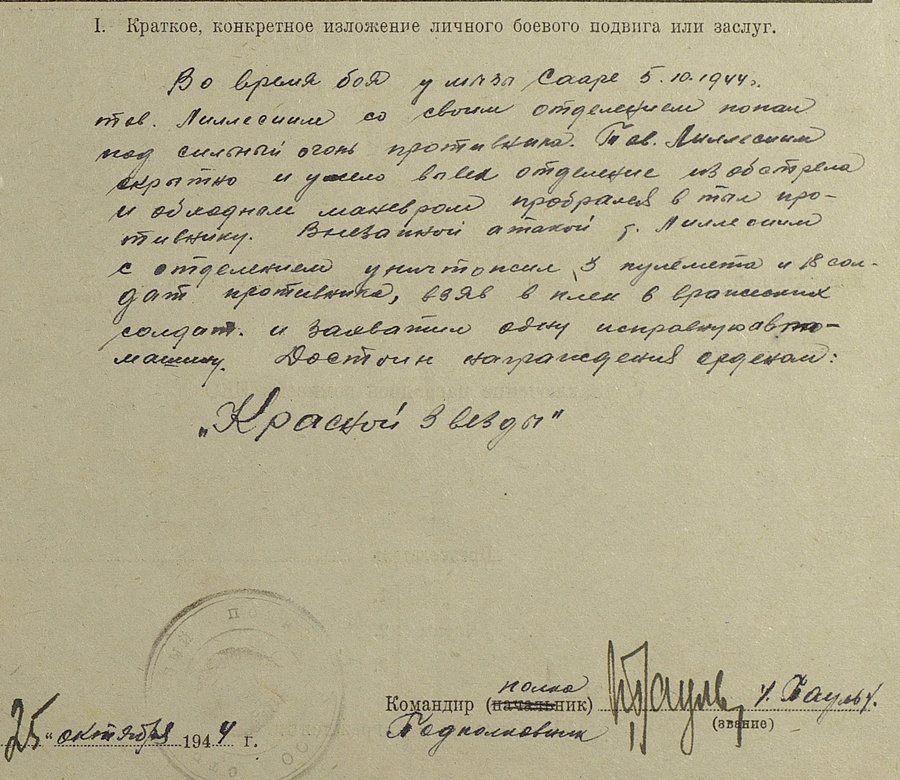 I. Краткое, конкретное изложение личного боевого подвига или заслуг.
Во время боя у мызы Сааре 5.10.1944г.
тов. Лиллесиим со своим отделением попал
под сильный огонь противника. Тов. Лиллесиим
скрытно и умело вывел отделение из обстрела
и обходным маневром пробрался в тыл про-
тивнику. Внезапной атакой т. Лиллесиим
с отделением уничтожил 3 пулемета и 18 сол-
дат противника, взяв в плен 6 вражеских
солдат. и захватил одну исправную авто-
машину. Достоин награждения орденом:
„Красной Звезды"
полка
Командир (начальник)
Подполковник
(звание)
/. Пауль /.
25 „ октября 1944 г.
ПОЛК